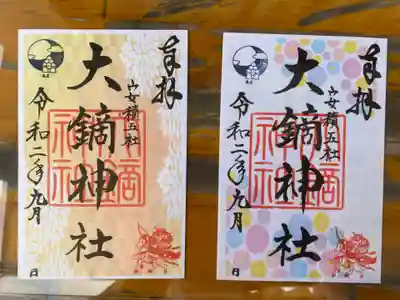 奉拝
安積五社
大鏑神社
令和二年九月 日
奉拝
安積五社
大鏑神社
令和二年九月 日